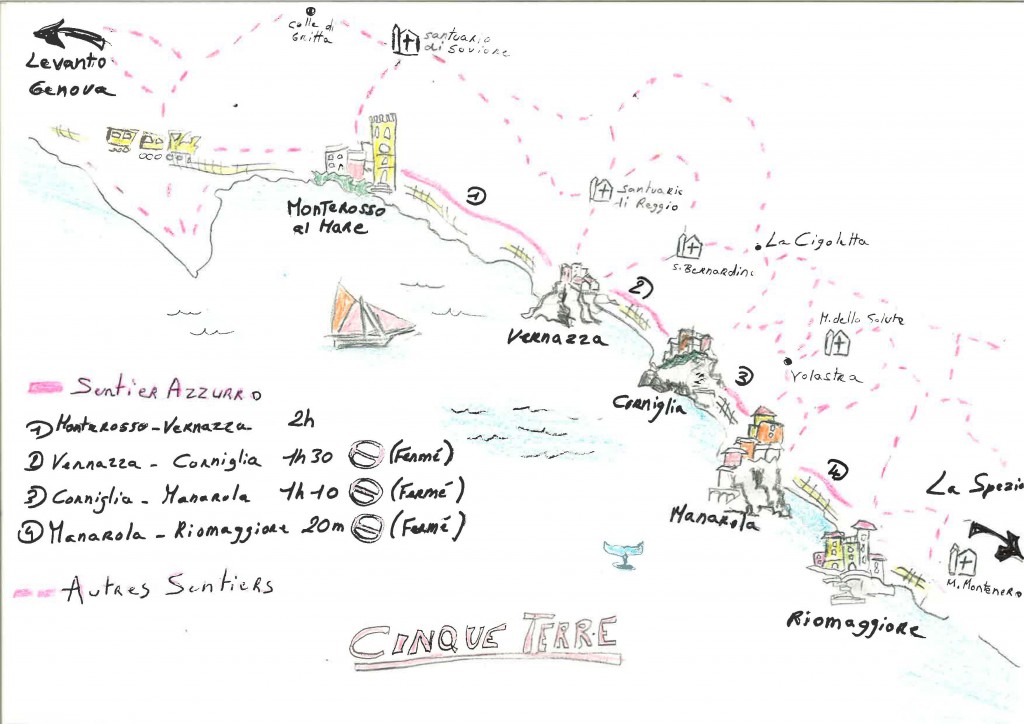 Levanto
Genova
Colle di
Gritta
santuario
di Soviore
Monterosso
al Mare
1
santuario
di Reggio
La Cigoletta
S. Bernardino
2
Vernazza
M. della Salute
Volastra
3
Corniglia
Manarola
4
La Spezia
M. Montenero
Riomaggiore
Sentier Azzurro
1 Monterosso - Vernazza 2h
2 Vernazza - Corniglia 1h30 (Fermé)
3 Corniglia - Manarola 1h10 (Fermé)
4 Manarola - Riomaggiore 20m (Fermé)
Autres Sentiers
Cinque Terre